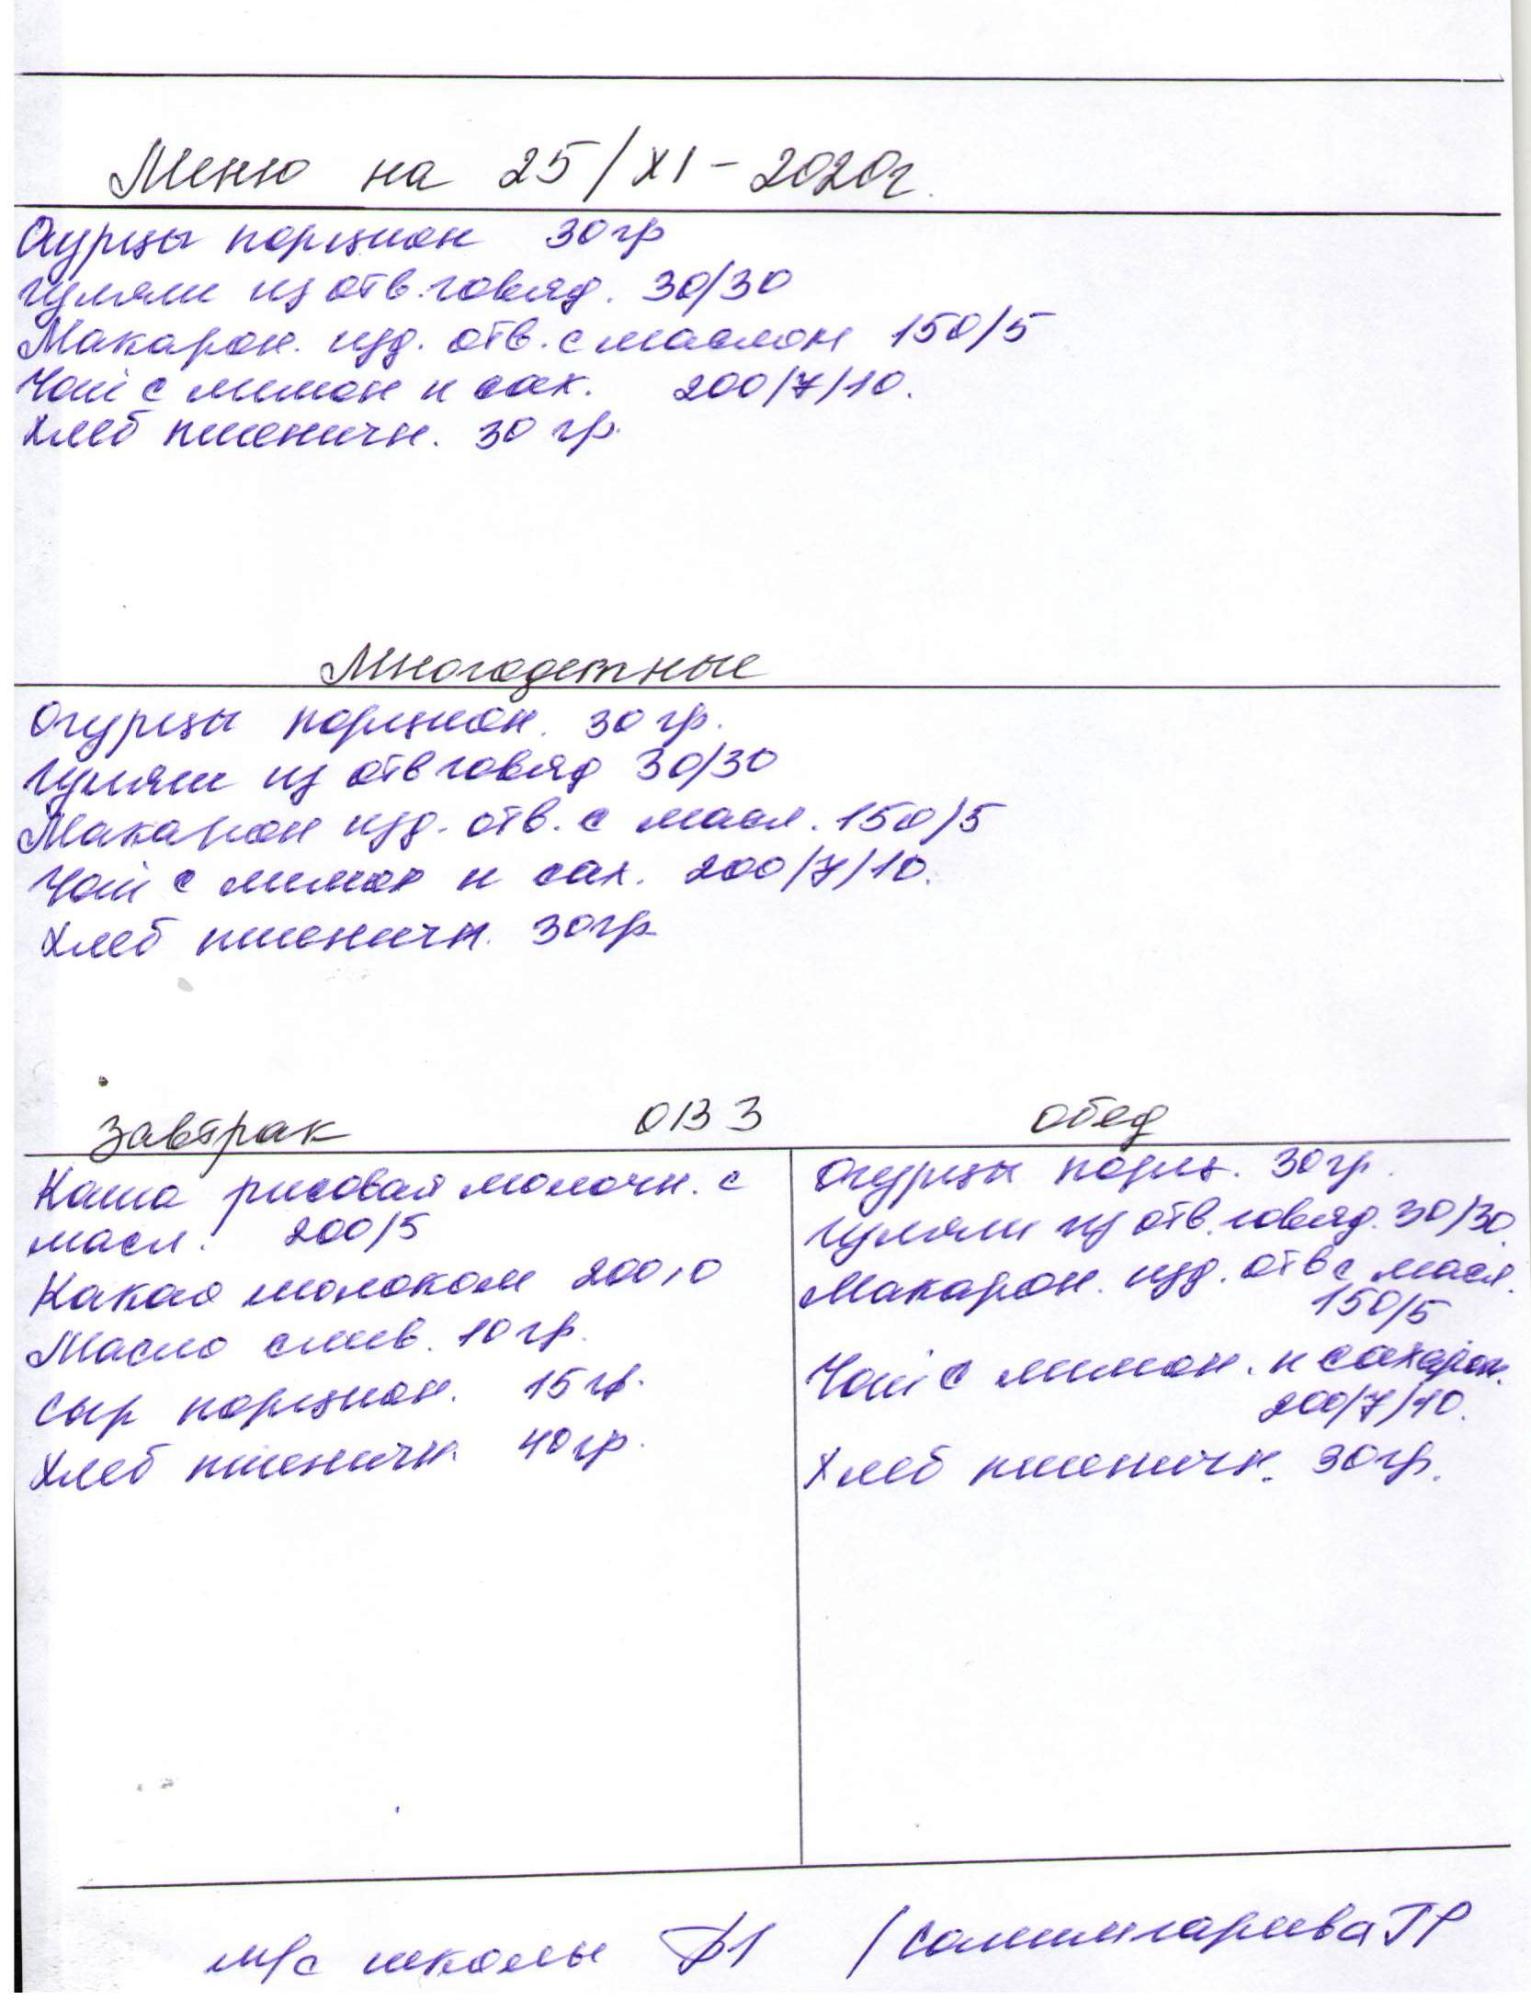 Меню на 25/XI-2020г.
Огурцы порцион 30гр
Гуляш из отв. говяд. 30/30
Макарон. изд. отв. с маслом 150/5
Чай с лимон и сах. 200/7/10.
Хлеб пшеничн. 30 гр.
Многодетные
Огурцы порцион. 30 гр.
Гуляш из отв говяд 30/30
Макарон изд. отв. с масл. 150/5
Чай с лимон и сах. 200/7/10.
Хлеб пшеничн. 30гр
Завтрак ОВЗ Обед
Каша рисовая молочн. с
масл. 200/5
Какао молоком 200,0
Масло слив. 10гр.
Сыр порцион. 15гр.
Хлеб пшеничн. 40гр.
Огурцы порц. 30гр.
Гуляш из отв. говяд. 30/30.
Макарон. изд. отв с масл.
150/5
Чай с лимон. и сахаром.
200/7/10.
Хлеб пшеничн. 30гр.
м/с школы №1 /Салимгареева ГР